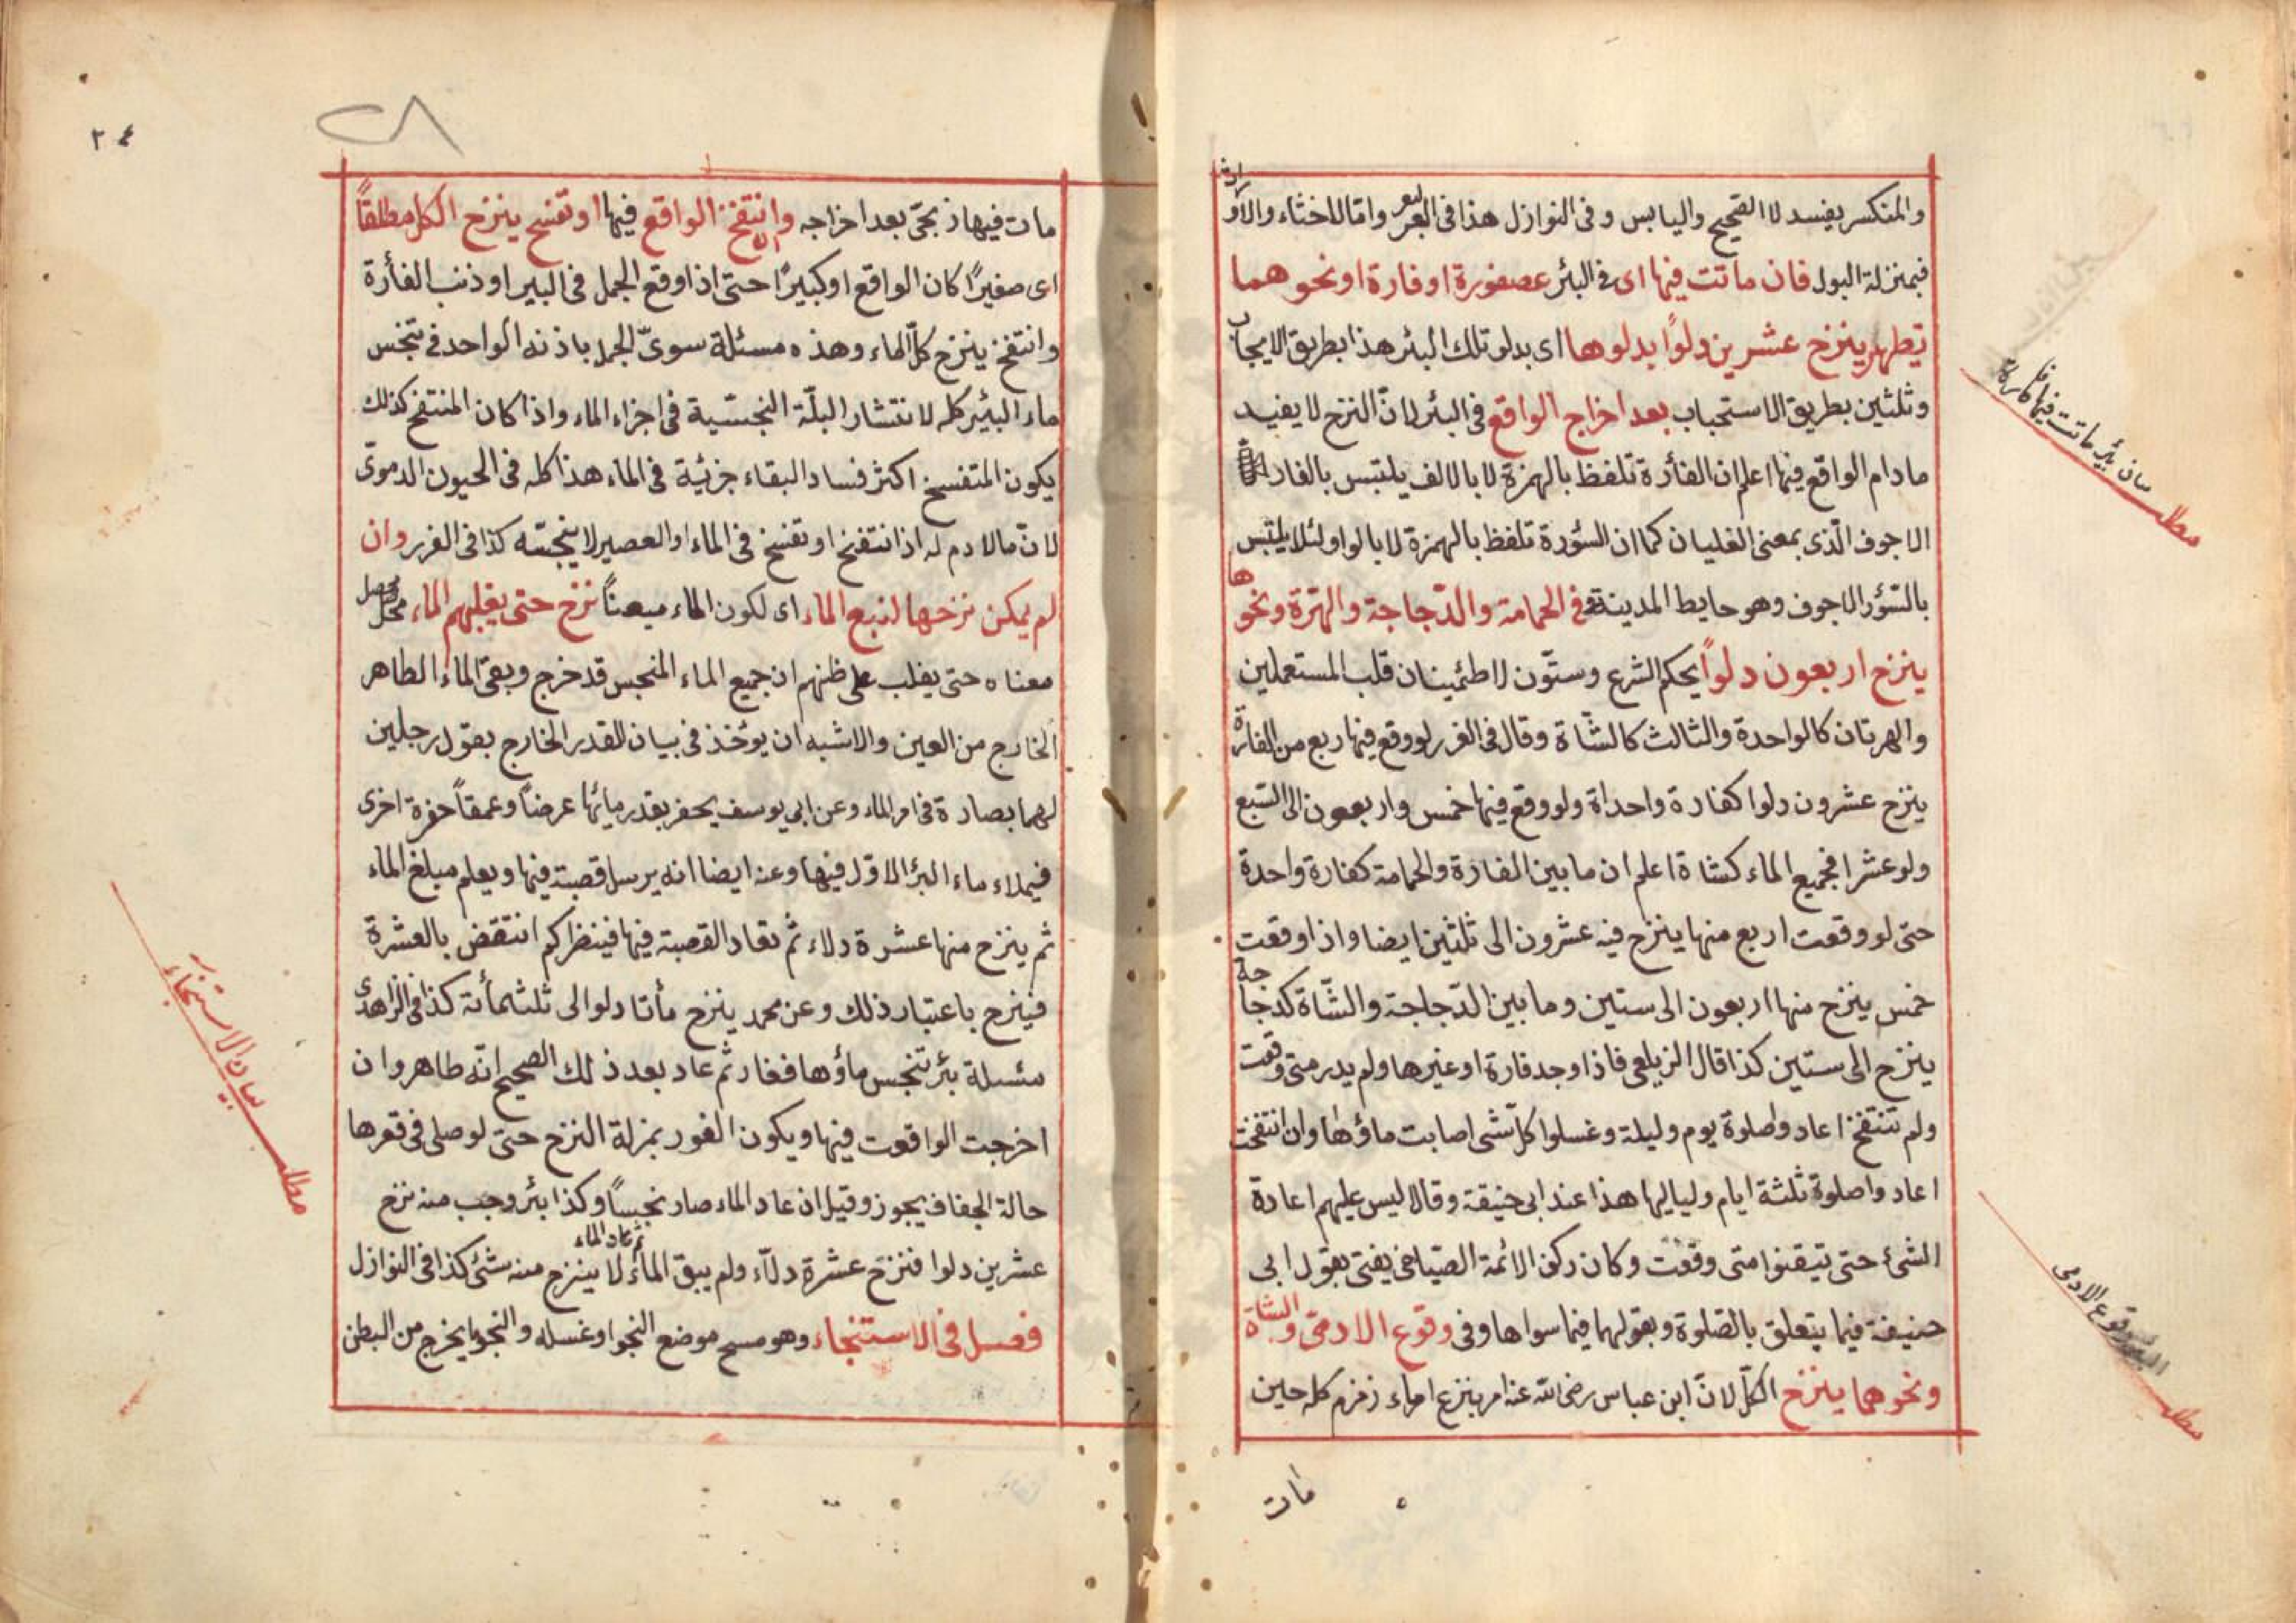 والمنكسر يفسد لا الصحيح واليابس وفى النوازل هذا فى البعر واما الاخثاء والاروا
فبمنزلة البول فان ماتت فيها اى فى البئر عصفورة او فارة او نحوهما
يطهر بنزح عشرين دلوًا بدلوها اى بدلو تلك البئر هذا بطريق الايجاب
وثلثين بطريق الاستحباب بعد اخراج الواقع فى البئر لان النزح لا يفيد
مادام الواقع فيها اعلم ان الفأرة تلفظ بالهمزة لا بالالف يلتبس بالفار
الاجوف الّذى بمعنى الغليان كما ان السؤرة تلفظ بالهمزة لا بالواو لئلا يلتبس
بالسّؤر الاجوف وهو حايط المدينة وفى الحمامة والدّجاجة والهرّة ونحوها
ينزح اربعون دلوًا بحكم الشرع وستّون لاطمئينان قلب المستعملين
والهرتان كالواحدة والثالث كالشّاة وقال فى الغرر لو وقع فيها ربع من الفارة
ينزح عشرون دلوا كفارة واحداة ولو وقع فيها خمس واربعون الى التسع
ولو عشرا فجميع الماء كشاة اعلم ان ما بين الفارة والحمامة كفارة واحدة
حتى لو وقعت اربع منها ينزح فيه عشرون الى ثلثين ايضا واذا وقعت
خمس ينزح منها اربعون الى ستين وما بين الدّجاجة والشّاة كدجاجة
ينزح الى ستين كذا قال الزيلعى فاذا وجد فارة او غيرها ولم يدر متى وقعت
ولم تنتفخ اعادوا صلوة يوم وليلة وغسلوا كلّ شى اصابت ماؤها وان انتفخت
اعادوا صلوة ثلثة ايام ولياليها هذا عند ابى حنيفة وقالا ليس عليهم اعادة
الشئ حتى يتيقنوا متى وقعت وكان ركن الائمة الصيّاغى يفتى بقول ابى
حنيفة فيما يتعلق بالصّلوة وبقولهما فيما سواها وفى وقوع الادمىّ والشاة
ونحوهما ينزح الكلّ لانّ ابن عباس رضى الله عنه امر بنزع ماء زمزم كله حين
مات
مطلب بيان بئر ماتت فيها فارة
مطلب وقوع الادمى
٢٤
٢٨
مات فيها زنجىّ بعد اخراجه وان انتفخ الواقع فيها او تفسخ ينزح الكل مطلقاً
اى صغيرًا كان الواقع او كبيرًا حتى اذا وقع الجمل فى البير او ذنب الفأرة
وانتفخ ينزح كلّ الماء وهذه مسئلة سوىّ الجمل باذنه الواحد فى تنجس
ماء البئير كله لانتشار البلّة النجسّية فى اجزاء الماء واذا كان المنتفخ كذلك
يكون المتفسخ اكثر فسادا لبقاء جزئية فى الماء هذا كله فى الحيون الدموىّ
لانّ ما لا دم له اذا انتفخ او تفسخ فى الماء او العصير لا ينجسّه كذا فى الغرر وان
لم يمكن نزحها لنبع الماء اى لكون الماء معيناً نزح حتى يغلبهم الماء محصل
معناه حتى يغلب على ظنهم ان جميع الماء المنجس قد خرج وبقى الماء الطاهر
الخارج من العين والاشبه ان يوخذ فى بيان القدر الخارج بقول رجلين
لهما بصارة فى امر الماء وعن ابي يوسف يحفر بقدر مائها عرضاً وعمقاً حفرة اخرى
فيملاء ماء البئر الاوّل فيها وعنه ايضا انه يرسل قصبة فيها ويعلم مبلغ الماء
ثم ينزح منها عشرة دلاء ثم تعاد القصبة فيها فينظر كم انتقض بالعشرة
فينزح باعتبار ذلك وعن محمد ينزح مأتا دلوا الى ثلثمأئة كذا فى الزاهدى
مسئلة بئر تنجس ماؤها فغار ثم عاد بعد ذلك الصحيح انّه طاهر وان
اخرجت الواقعت فيها ويكون الغور بمزلة النزح حتى لو صلى فى قعرها
حالة الجفاف يجوز وقيل ان عاد الماء صار نجساً وكذا بئر وجب منه نزح
عشرين دلوا فنزح عشرة دلآء ولم يبق الماء ثم عاد الماء لا ينزح منه شئ كذا فى النوازل
فصل فى الاستنجاء وهو مسح موضع النجو او غسله والنجو ما يخرج من البطن
مطلب بيان الاستنجاء